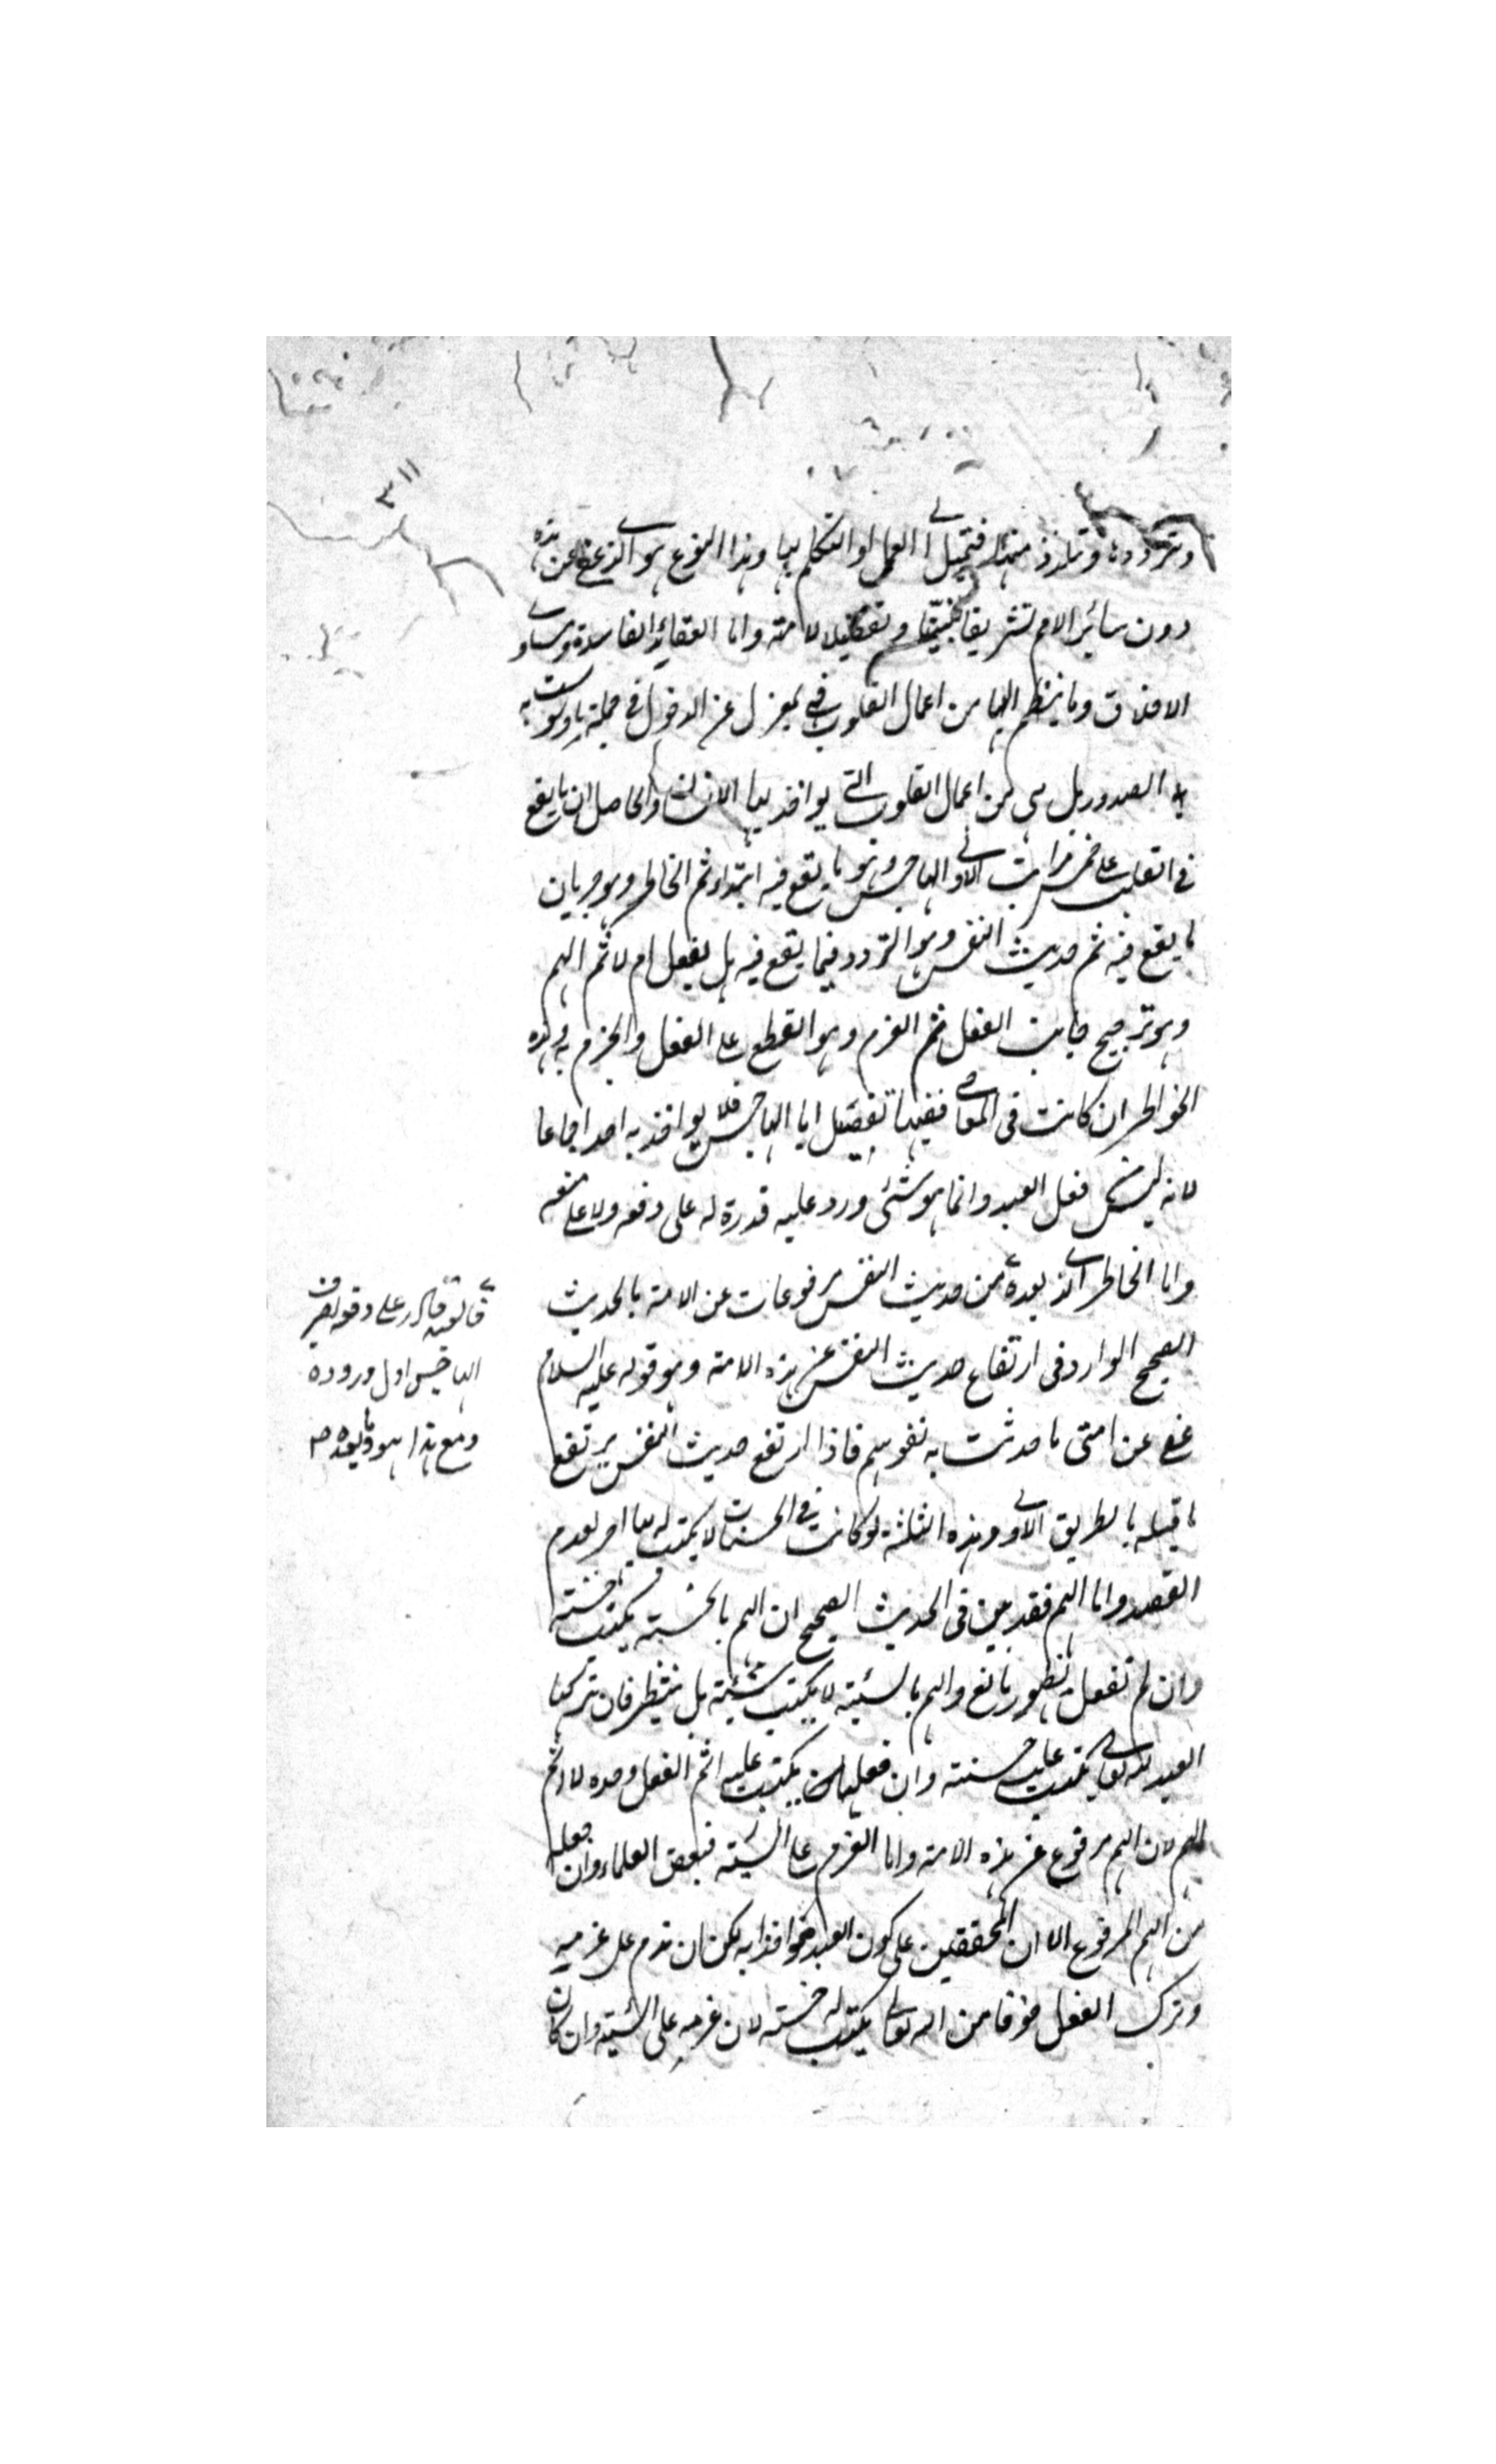 ٣١١
وتردد بها وتلذذ منها فتميل الى العمل او التكلم بها وهذا النوع هو الذي عفى عن هذه
دون سائر الامم تشريفا لنبينا وتفضيلا لامته واما العقائد الفاسدة ومساوى
الاخلاق وما ينظم اليها من اعمال القلوب فهي بمعزل عن الدخول في جملة ما وسوست به
به الصدور بل هي من اعمال القلوب التي يواخذ بها الانسان والحاصل ان ما يقع
في القلب على خمس مراتب الاولى الهاجس وهو ما يقع فيه ابتداء ثم الخاطر وهو جريان
ما يقع فيه ثم حديث النفس وهو التردد فيما يقع فيه هل يفعل ام لا ثم الهم
وهو ترجيح جانب الفعل ثم العزم وهو القطع على الفعل والجزم به وهذه
الخواطر ان كانت في المعاصي ففيها تفصيل اما الهاجس فلا يواخذ به احد اجماعا
لانه ليس من فعل العبد وانما هو شئ ورد عليه قدرة له على دفعه ولا على منعه
واما الخاطر الذي بعده من حديث النفس مرفوعات عن الامة بالحديث
الصحيح الوارد في ارتفاع حديث النفس عن هذه الامة وهو قوله عليه السلام
عفى عن امتى ما حدثت به نفوسهم فاذا ارتفع حديث النفس يرتفع
ما قبله بالطريق الاولى وهذه الثلثة لو كانت في الحسنات لا يكتب له بها اجر لعدم
القصد واما الهم فقد بين في الحديث الصحيح ان الهم بالحسنة يكتب حسنة
وان لم تفعل لظهور مانع والهم بالسيئة لا يكتب سيئة بل ينتظر فان تركها
العبد لله تعالى يكتب عليه حسنة وان فعلها يكتب عليه اثم الفعل وحده لا اثم
الهم لان الهم مرفوع عن هذه الامة واما العزم على السيئة فبعض العلماء وان جعله
من الهم المرفوع الا ان المحققين على كون العبد مواخذا به لكن ان ندم على عزمه
وترك الفعل خوفا من الله تعالى يكتب له حسنة لان عزمه على السيئة وان كان
قادر على دفعه بصرف
الهاجس اول وروده
ومع هذا هو وما بعده